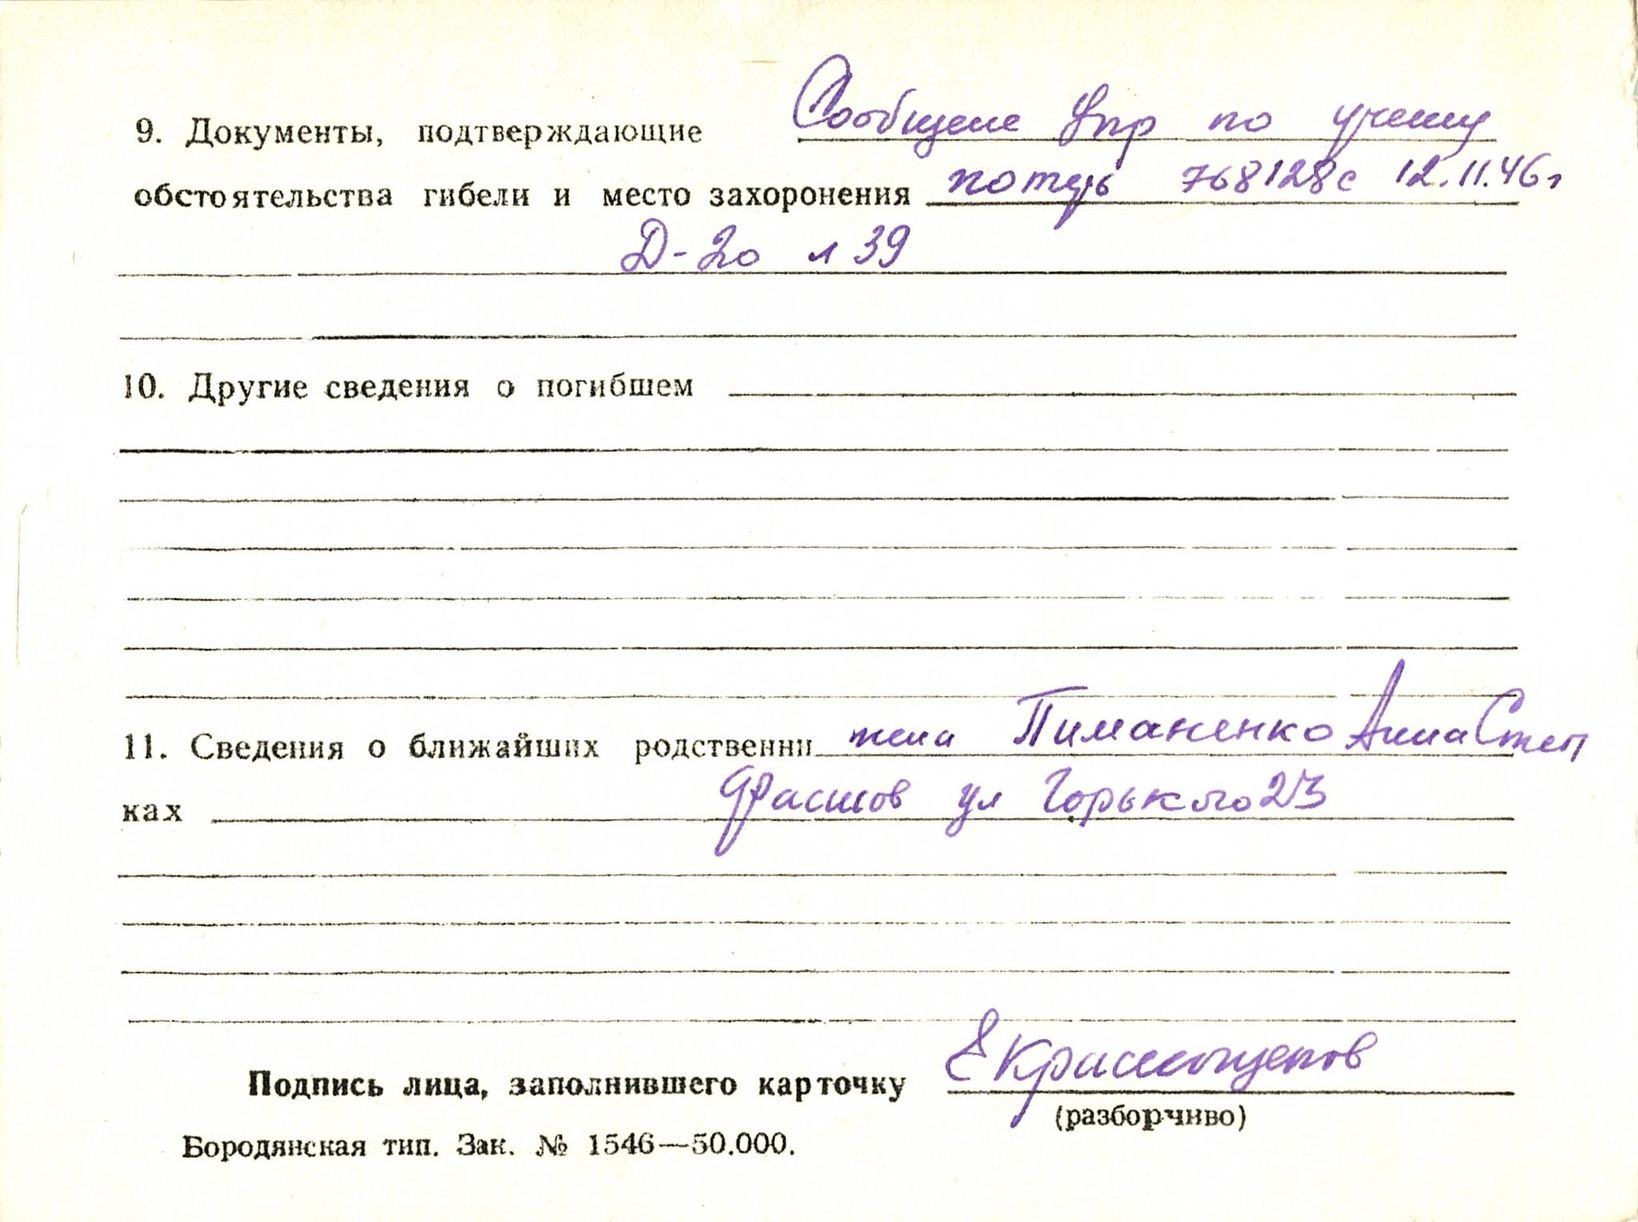 9. Документы, подтверждающие Сообщение Упр по учету
обстоятельства гибели и место захоронения потерь 768128с 12.11.46г
Д-20 л 39
10. Другие сведения о погибшем
11. Сведения о ближайших родственни жена Пиманенко Анна Степ
ках Фастов ул Горького 23
Подпись лица, заполнившего карточку
(разборчиво)
Бородянская тип. Зак. № 1546—50.000.